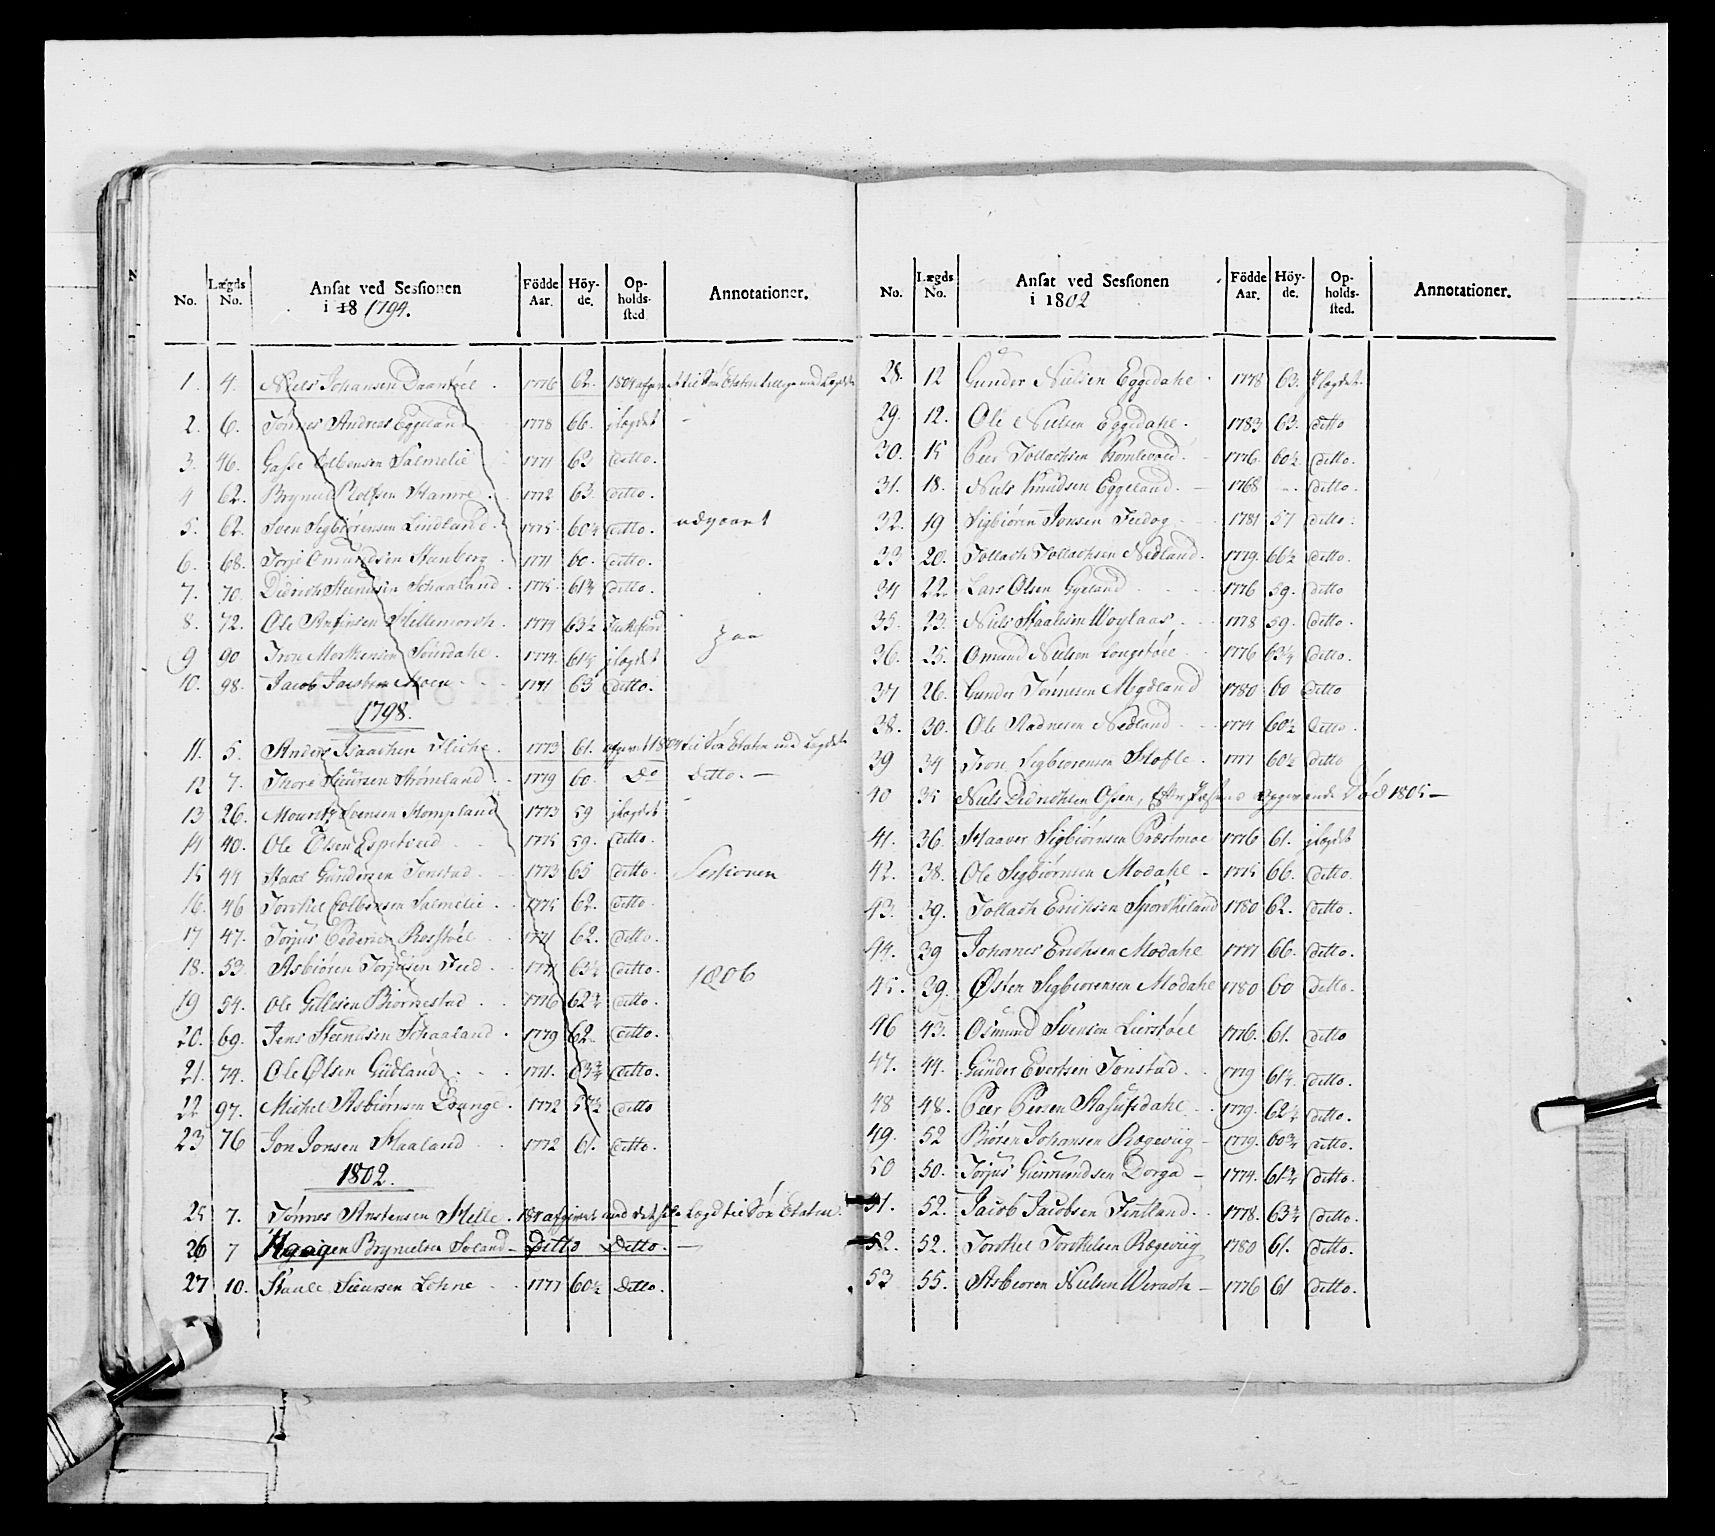 No. Lægds No. Ansat ved Sessionen i 18 1794. Födde Aar. Höyde. Opholdssted Annotationer.
1. 4. Niels Johansen Daanstöel. 1776 62. 1804 afgivet til Söe Etaten tillige med Lægdet
2. 6. Tönnes Andreas Eggeland 1778 66. i lægdet
3. 46. Gasse Colbensen Salmelie 1771 63 ditto.
4 62. Bryniel Rolfsen Stamre. 1772 63. ditto.
5. 62. Sven Sigbiörensen Lindland. 1775. 60¼ ditto. udgaaet
6. 68. Torje Omundsen Stanberg. 1771 60. ditto.
7. 70. Didrich Steensen Schaaland. 1775. 61¾ ditto.
8. 72. Ole Hellemorch. 1774 63½
9 90 Tron Morthensen Söirdahl. 1774. 61½ i lægdet paa
10. 98. Jacob Jacobsen Moen. 1771 63 ditto.
1798.
11. 5. Anders Isaachsen Fliche. 1773 61. afgivet 1804 til Söe Etaten med Lægdet
12 7. Thore Siursen Strömland. 1779 60. Do Ditto. —
13 26. Mouritz Svensen Stompland 1773 59 i lægdet
14 40. Ole Olsen Espetved 1775 59. ditto.
15 44 Staal Gundersen Tonstad. 1773 65 ditto. Sessionen
16. 46 Torchel Colbensen Salmelie. 1775 62. ditto.
17 47. Torjus Pedersen Rosstöel. 1771 62. ditto.
18. 53. Asbiören Torjusen Feed. 1771 63½ ditto.
19 54. Ole Gellesen Biörnestad. 1776 62¾ ditto. 1806
20. 69. Jens Steensen Schaaland. 1779 62. ditto.
21. 74. Ole Olsen Gudland. 1771. 63¾ ditto.
22 97. Michel Asbiörnsen Qvange. 1772 57½ ditto
23 76 Jon Jonsen Staaland. 1772 61. ditto.
1802.
25 7. Tönnes Anstensen Melle. 1804 afgivet med det hele Lægd til Söe Etaten.
26 7 Aagen Bryniulsen Soland — Ditto Ditto. —
27 10. Staale Siursen Lohne 1777 60½ Ditto.
No. Lægds No. Ansat ved Sessionen i 1802 Födde Aar. Höyde. Opholdssted. Annotationer.
28. 12 Gunder Nielsen Eggedahl. 1778 63. i lægdet
29. 12. Ole Nielsen Eggedahl. 1783 63. ditto
30. 15 Peer Tollachsen Homlevold. 1776 60½ ditto.
31. 18. Niels Knudsen Eggeland. — 1768 ditto.
32. 19 Sigbiören Jonsen Feedog 1781 57 ditto.
33 20. Tollach Tollachsen Nedland. 1779. 66½ ditto.
34 22. Lars Olsen Gyeland 1776 59. ditto
35. 23. Niels Staalesen Woylaas. 1778 59. ditto.
36. 25. Omund Nielsen Longstöel. 1776 63¼ ditto.
37 26. Gunder Tönnesen Mydland 1780 60 ditto
38. 30. Ole Stadnesen Nedland 1774 60½ ditto.
39 34 Tron Sigbiörensen Stofle. 1777 60½ ditto
40 35 Niels Didrichsen Ofsen, efter Opgivende Död 1805 —
41. 36. Haaver Sigbiörnsen Præstmoe 1776 61. i lægdet
42. 38. Ole Sigbiörnsen Modahl. 1775 66. ditto.
43. 39. Tollach Erichsen Sporcheland 1780 62. ditto.
44. 39 Johannes Erichsen Modahl 1777 66. ditto.
45. 39. Östen Sigbiörensen Modahl 1780 60 Ditto.
46 43. Osmund Svensen Lierstöel 1776. 61. ditto
47. 44. Gunder Evertsen Tonstad. 1779 61½ ditto.
48 48. Peer Persen Hafusdahl. 1779. 62½ ditto.
49. 52 Biören Johansen Rægeviig — 1779. 60¾ ditto.
50 50. Torjus Giermundsen Dorga — 1774. 61¾ ditto.
51. 52. Jacob Jacobsen Fintland. 1778. 63¾ ditto.
52. 52. Torchel Torchelsen Rægeviig 1780 61. ditto.
53 55. Asbiören Nielsen Virach — 1776 61 ditto.